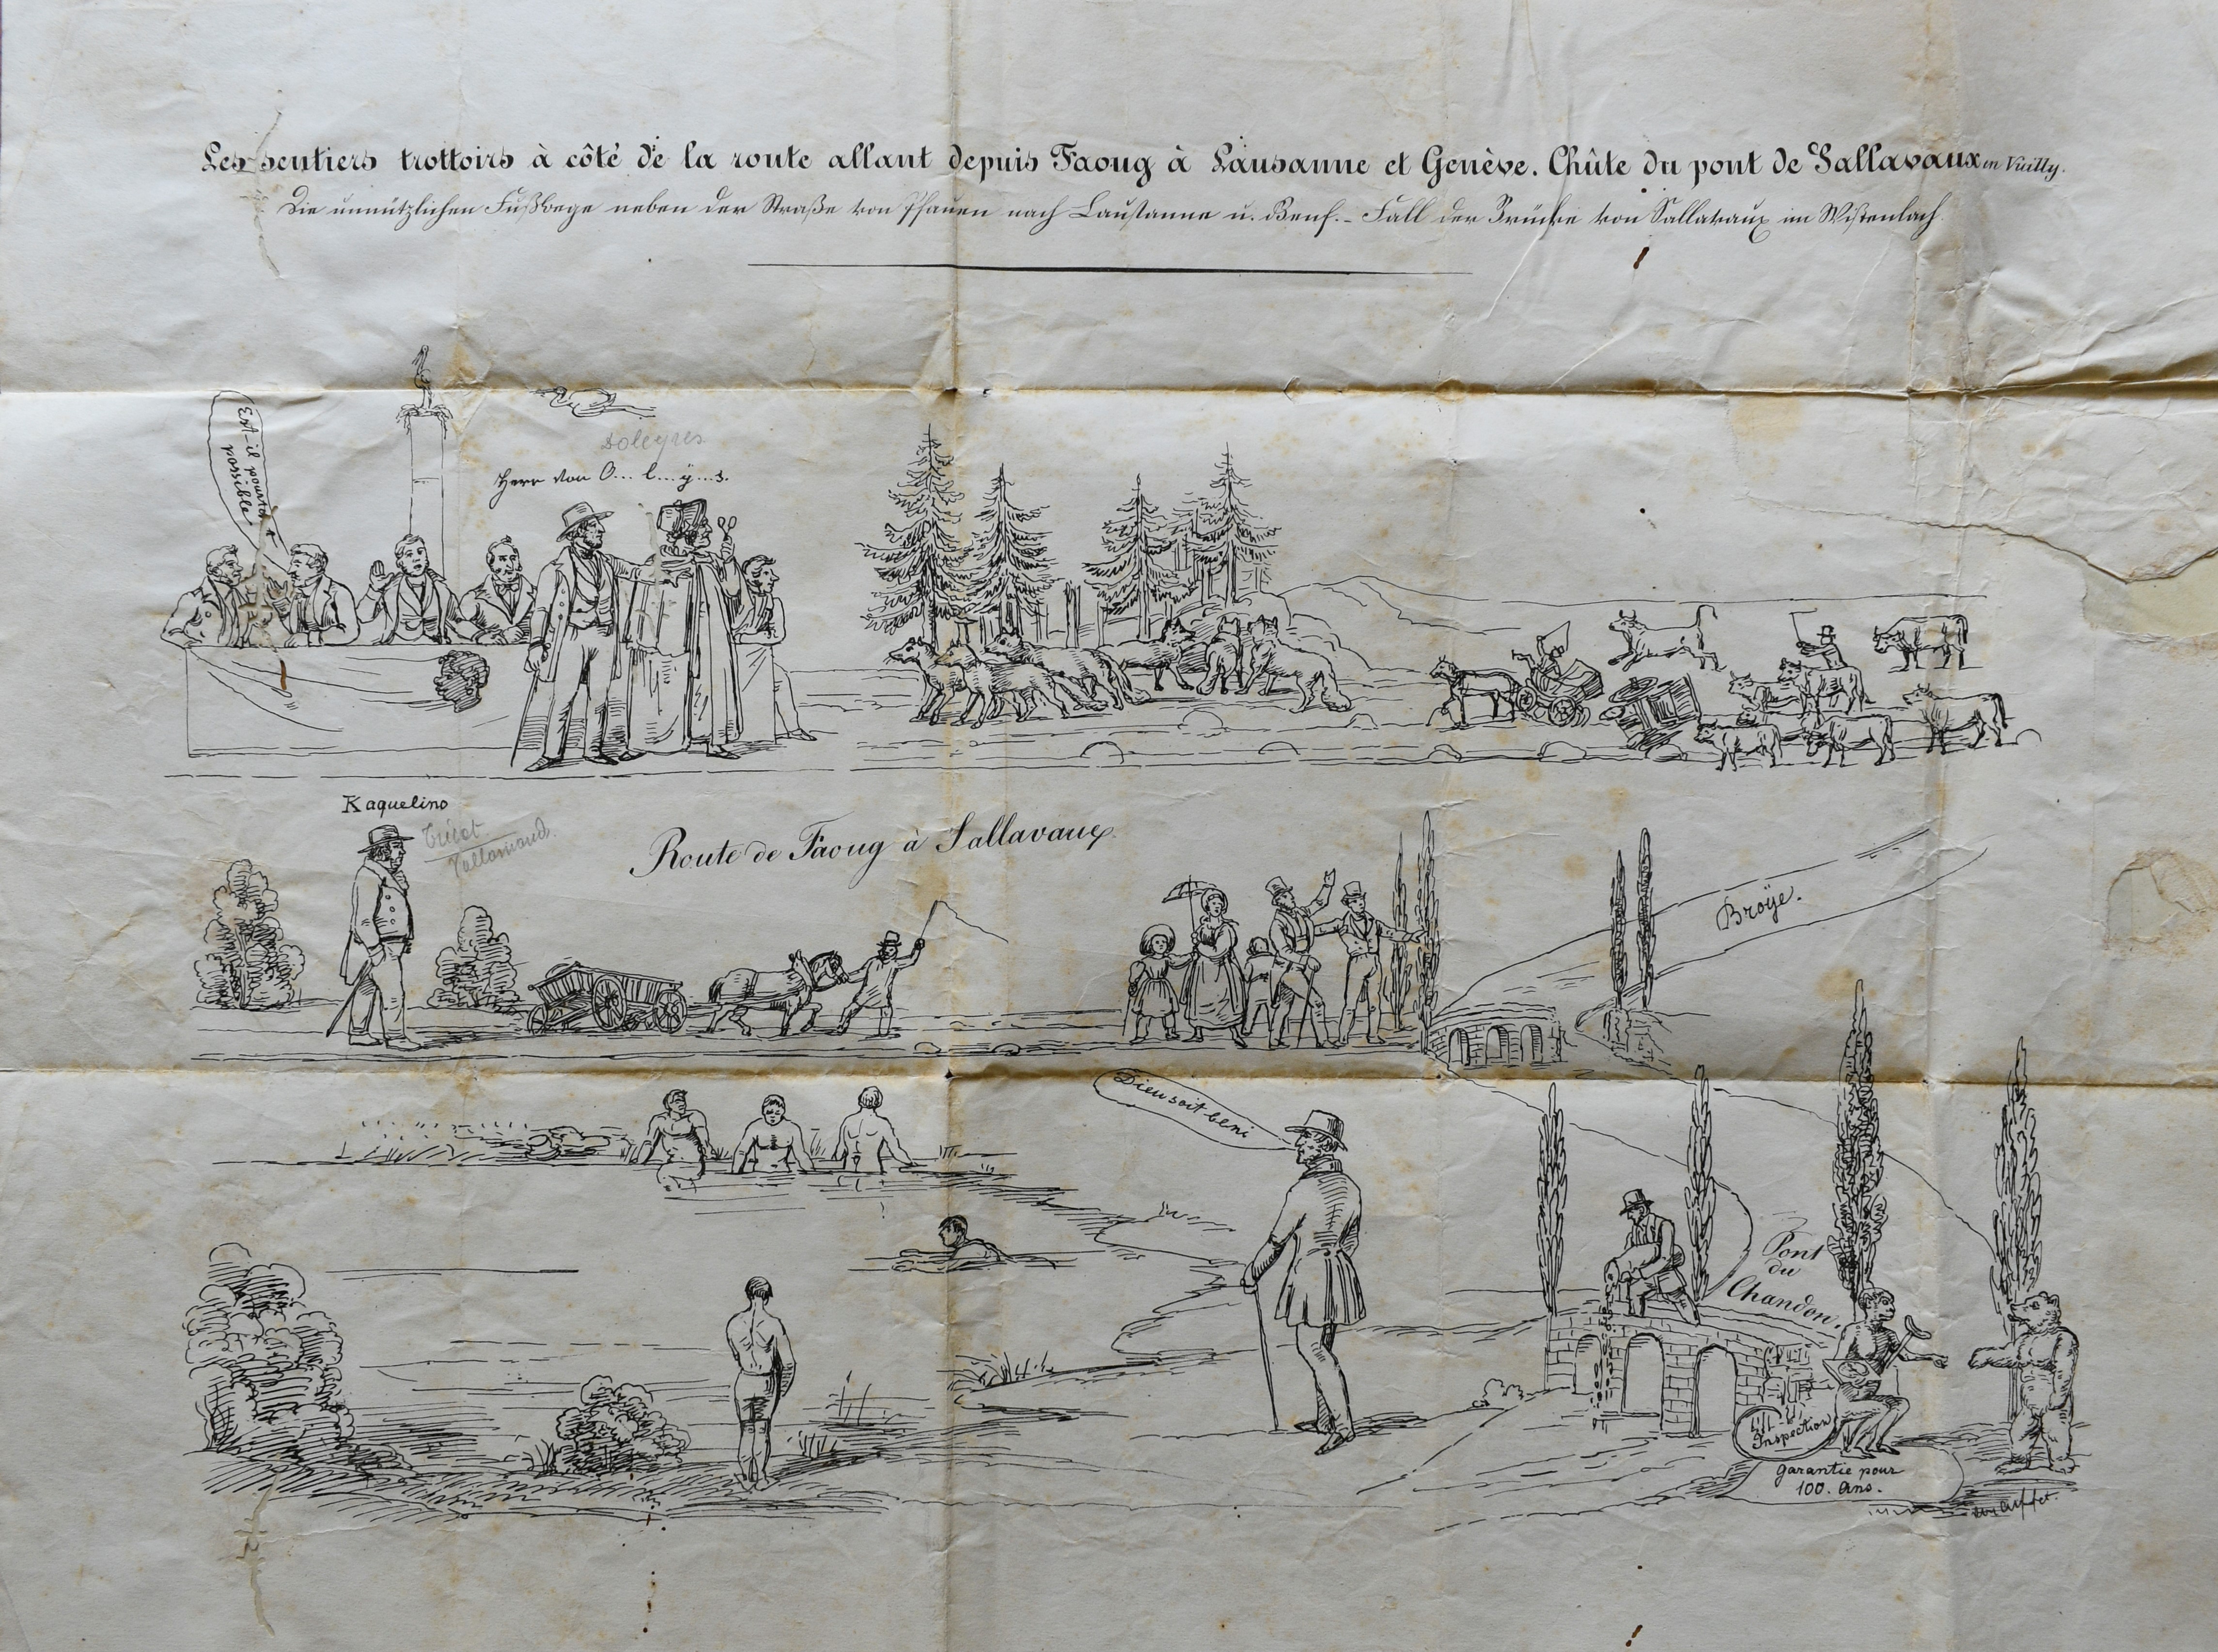 Les sentiers trottoirs à côté de la route allant depuis Faoug à Lausanne et Genève. Chûte du pont de Sallavaux en Vuilly.
Die unnützlichen Fußwege neben der Straße von Pfauen nach Laußanne u. Genf. - Fall der Brücke von Sallavaux im Wistenlach.
Est-il
possible
Doleyres
Herr von O... l... ÿ...s.
Kaquelino
Route de Faoug à Sallavaux
Broÿe.
Dieu soit beni
Pont
du
Chandon.
Inspection
garantie pour
100. Ans.